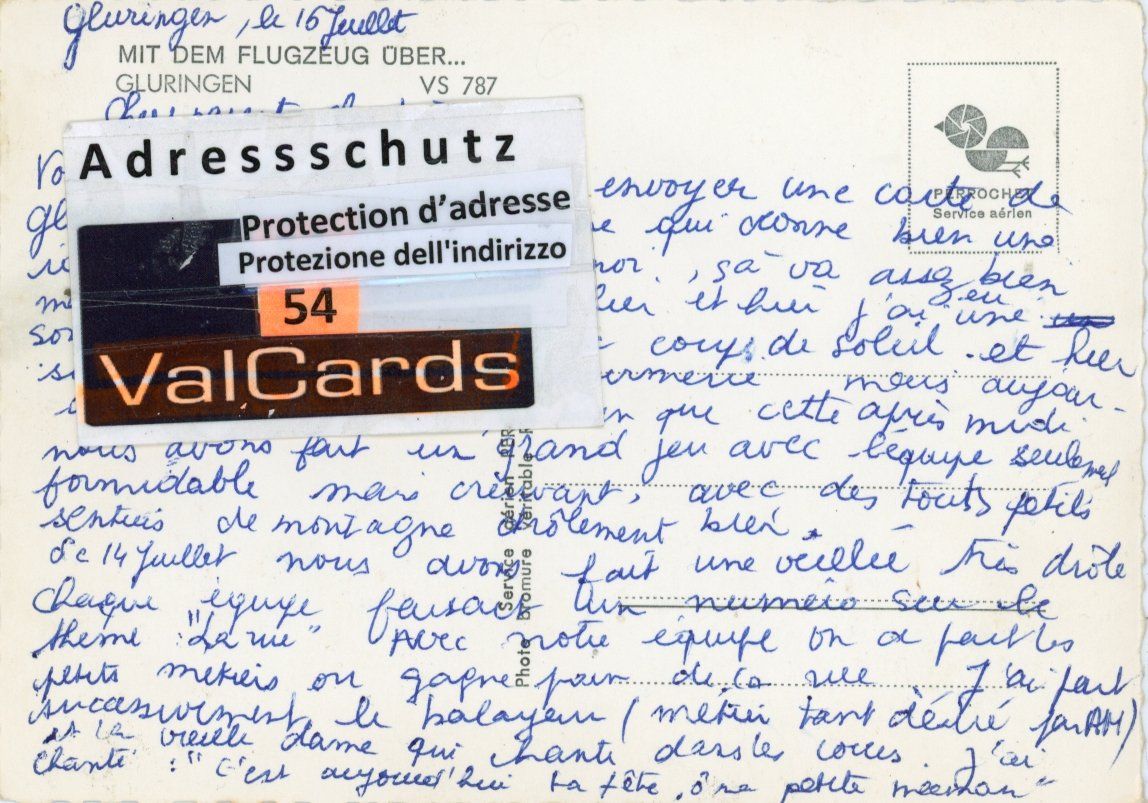 Gluringen, le 16 Juillet
MIT DEM FLUGZEUG ÜBER...
GLURINGEN VS 787
PERROCHET
Service aérien
Adressschutz
Protection d'adresse
Protezione dell'indirizzo
54
ValCards
envoyer une carte de
qui donne bien une
, ça va assez bien
hier et hui j'ai eu une
coups de soleil. et hier
mais aujour-
que cette après midi
nous avons fait un grand jeu avec l'équipe seulement
formidable mais crevant, avec des touts petits
sentiers de montagne drôlement bien.
Le 14 Juillet nous avons fait une veillée très drôle
chaque équipe faisait un numéro sur le
theme "La rue" Avec notre équipe on a fait les
petits metiers ou gagne pain de la rue. J'ai fait
successivement le balayeur (métier tant désiré par AM)
et la vieille dame qui chante dans les cours. j'ai
chanté : "c'est aujourd'hui ta fête, ô ma petite maman"
Photo bromure véritable
Service aérien PER